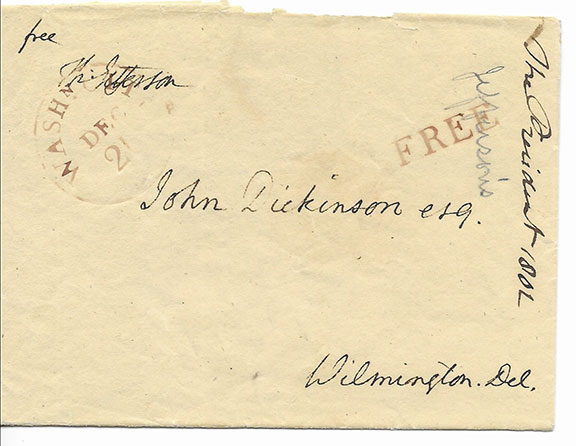 free
Th: Jefferson
WASHN
DEC
FREE
John Dickinson esq.
Wilmington. Del.
The President 1802
Jefferson's